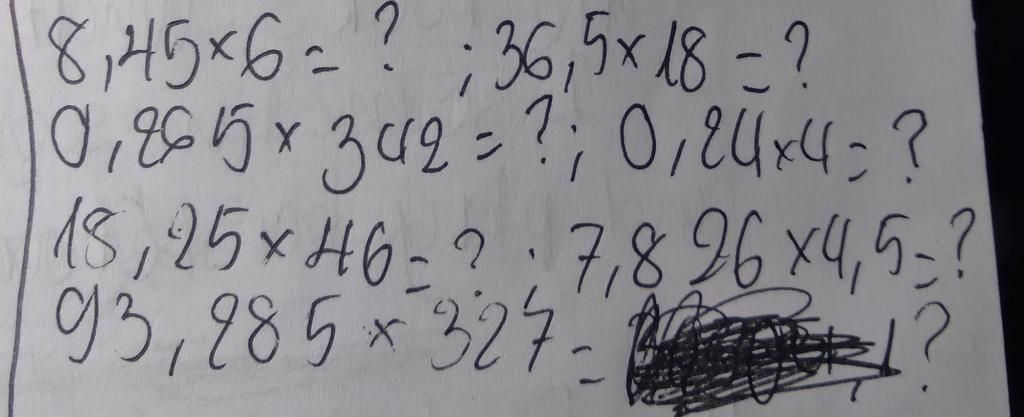 8,45×6=? ; 36,5×18=?
0,265×342=? ; 0,24×4=?
18,25×46=? ; 7,826×4,5=?
93,285×327= ?